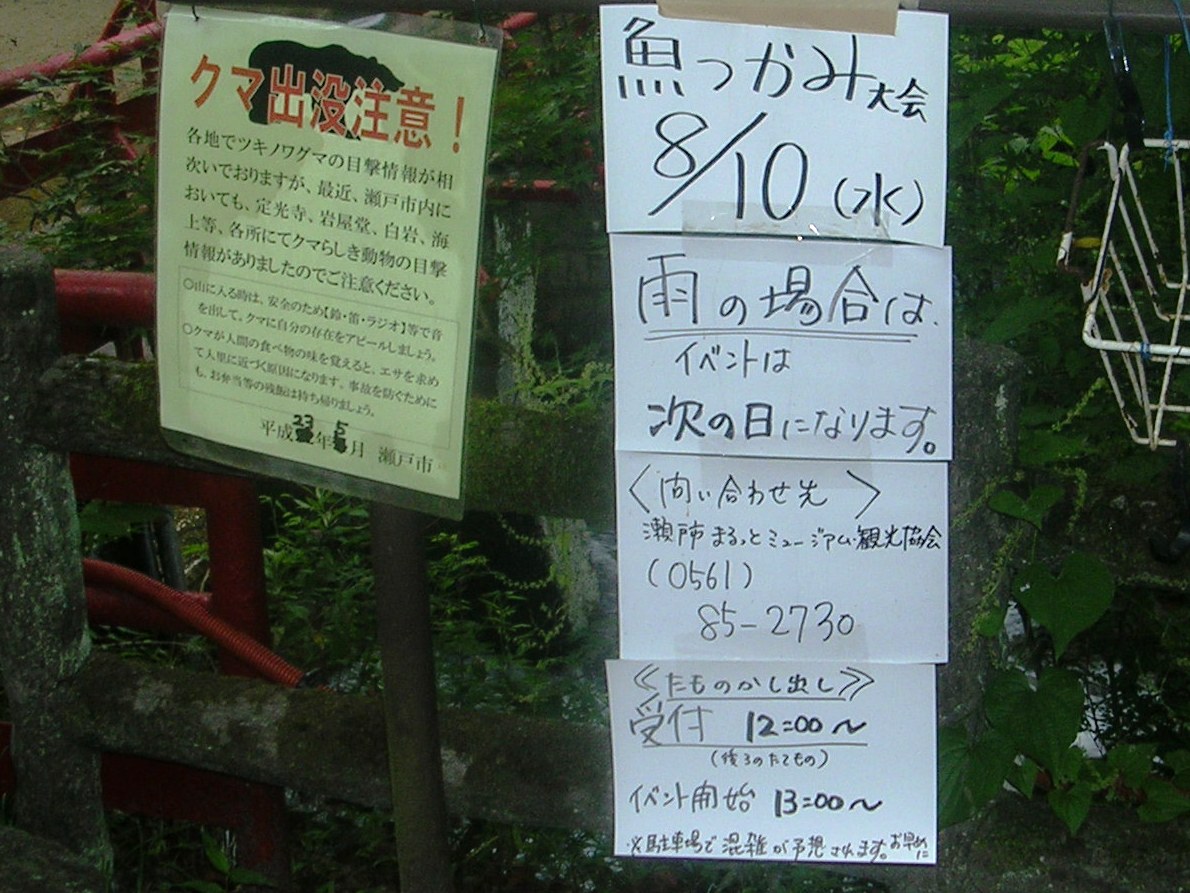 クマ出没注意！
各地でツキノワグマの目撃情報が相
次いでおりますが、最近、瀬戸市内に
おいても、定光寺、岩屋堂、白岩、海
上等、各所にてクマらしき動物の目撃
情報がありましたのでご注意ください。
○山に入る時は、安全のため【鈴・笛・ラジオ】等で音
を出して、クマに自分の存在をアピールしましょう。
○クマが人間の食べ物の味を覚えると、エサを求め
て人里に近づく原因になります。事故を防ぐために
も、お弁当等の残飯は持ち帰りましょう。
平成23年5月 瀬戸市
魚つかみ大会
8/10(水)
雨の場合は、
イベントは
次の日になります。
〈問い合わせ先〉
瀬戸市まるっとミュージアム・観光協会
(0561)
85-2730
≪たものかし出し≫
受付 12:00～
(後ろのたてもの)
イベント開始 13:00～
※駐車場で混雑が予想されます。お早めに